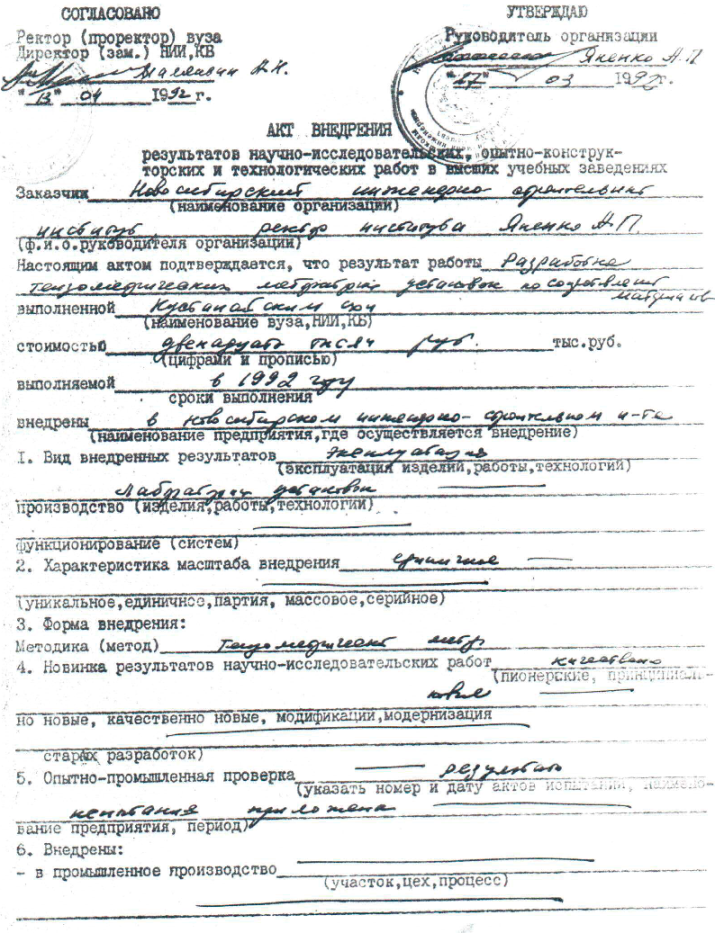 СОГЛАСОВАНО
УТВЕРЖДАЮ
Ректор (проректор) вуза
Директор (зам.) НИИ,КБ
Руководитель организации
Яненко А.П
"13" 04 1992 г.
"17" 03 1992 г.
АКТ ВНЕДРЕНИЯ
результатов научно-исследовательских, опытно-конструк-
торских и технологических работ в высших учебных заведениях
Заказчик Новосибирский инженерно строительный
(наименование организации)
институт, ректор института Яненко А.П.
(ф.и.о.руководителя организации)
Настоящим актом подтверждается, что результат работы Разработка
тензометрических установок по
материалов
выполненной Кустанайским
(наименование вуза,НИИ,КБ)
стоимостью двенадцать тысяч руб. тыс.руб.
(цифрами и прописью)
выполняемой в 1992 году
сроки выполнения
внедрены в Новосибирском инженерно-строительном и-те
(наименование предприятия,где осуществляется внедрение)
I. Вид внедренных результатов эксплуатация
(эксплуатация изделий,работы,технологии)
установок
производство (изделия,работы,технологии)
функционирование (систем)
2. Характеристика масштаба внедрения единичное
(уникальное,единичное,партия, массовое,серийное)
3. Форма внедрения:
Методика (метод) Тензометрический метод
4. Новинка результатов научно-исследовательских работ качественно
(пионерские, принципиаль-
новые
но новые, качественно новые, модификации,модернизация
старых разработок)
5. Опытно-промышленная проверка результаты
(указать номер и дату актов испытаний, наимено-
испытания приложена
вание предприятия, период)
6. Внедрены:
- в промышленное производство
(участок,цех,процесс)